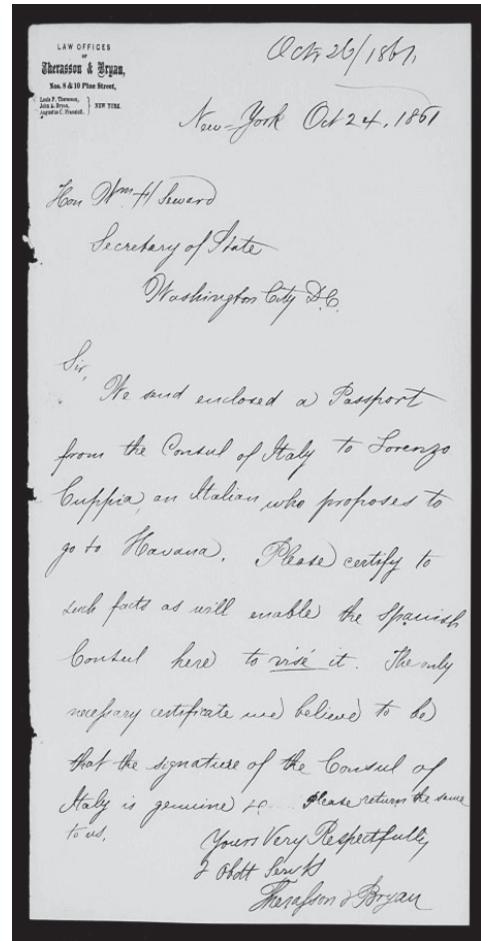 LAW OFFICES
OF
Therasson & Bryan,
Nos. 8 & 10 Pine Street,
Louis F. Therasson,
John A. Bryan,
Augustus C. Fransioli.
NEW YORK.
Oct 26/1861,
New-York Oct 24, 1861
Hon Wm H Seward
Secretary of State
Washington City D.C.
Sir,
We send enclosed a Passport
from the Consul of Italy to Lorenzo
Cuppia, an Italian who proposes to
go to Havana. Please certify to
such facts as will enable the Spanish
Consul here to visé it. The only
necessary certificate we believe to be
that the signature of the Consul of
Italy is genuine &c. Please return the same
to us.
Yours Very Respectfully
& Obdt Servts
Therasson & Bryan